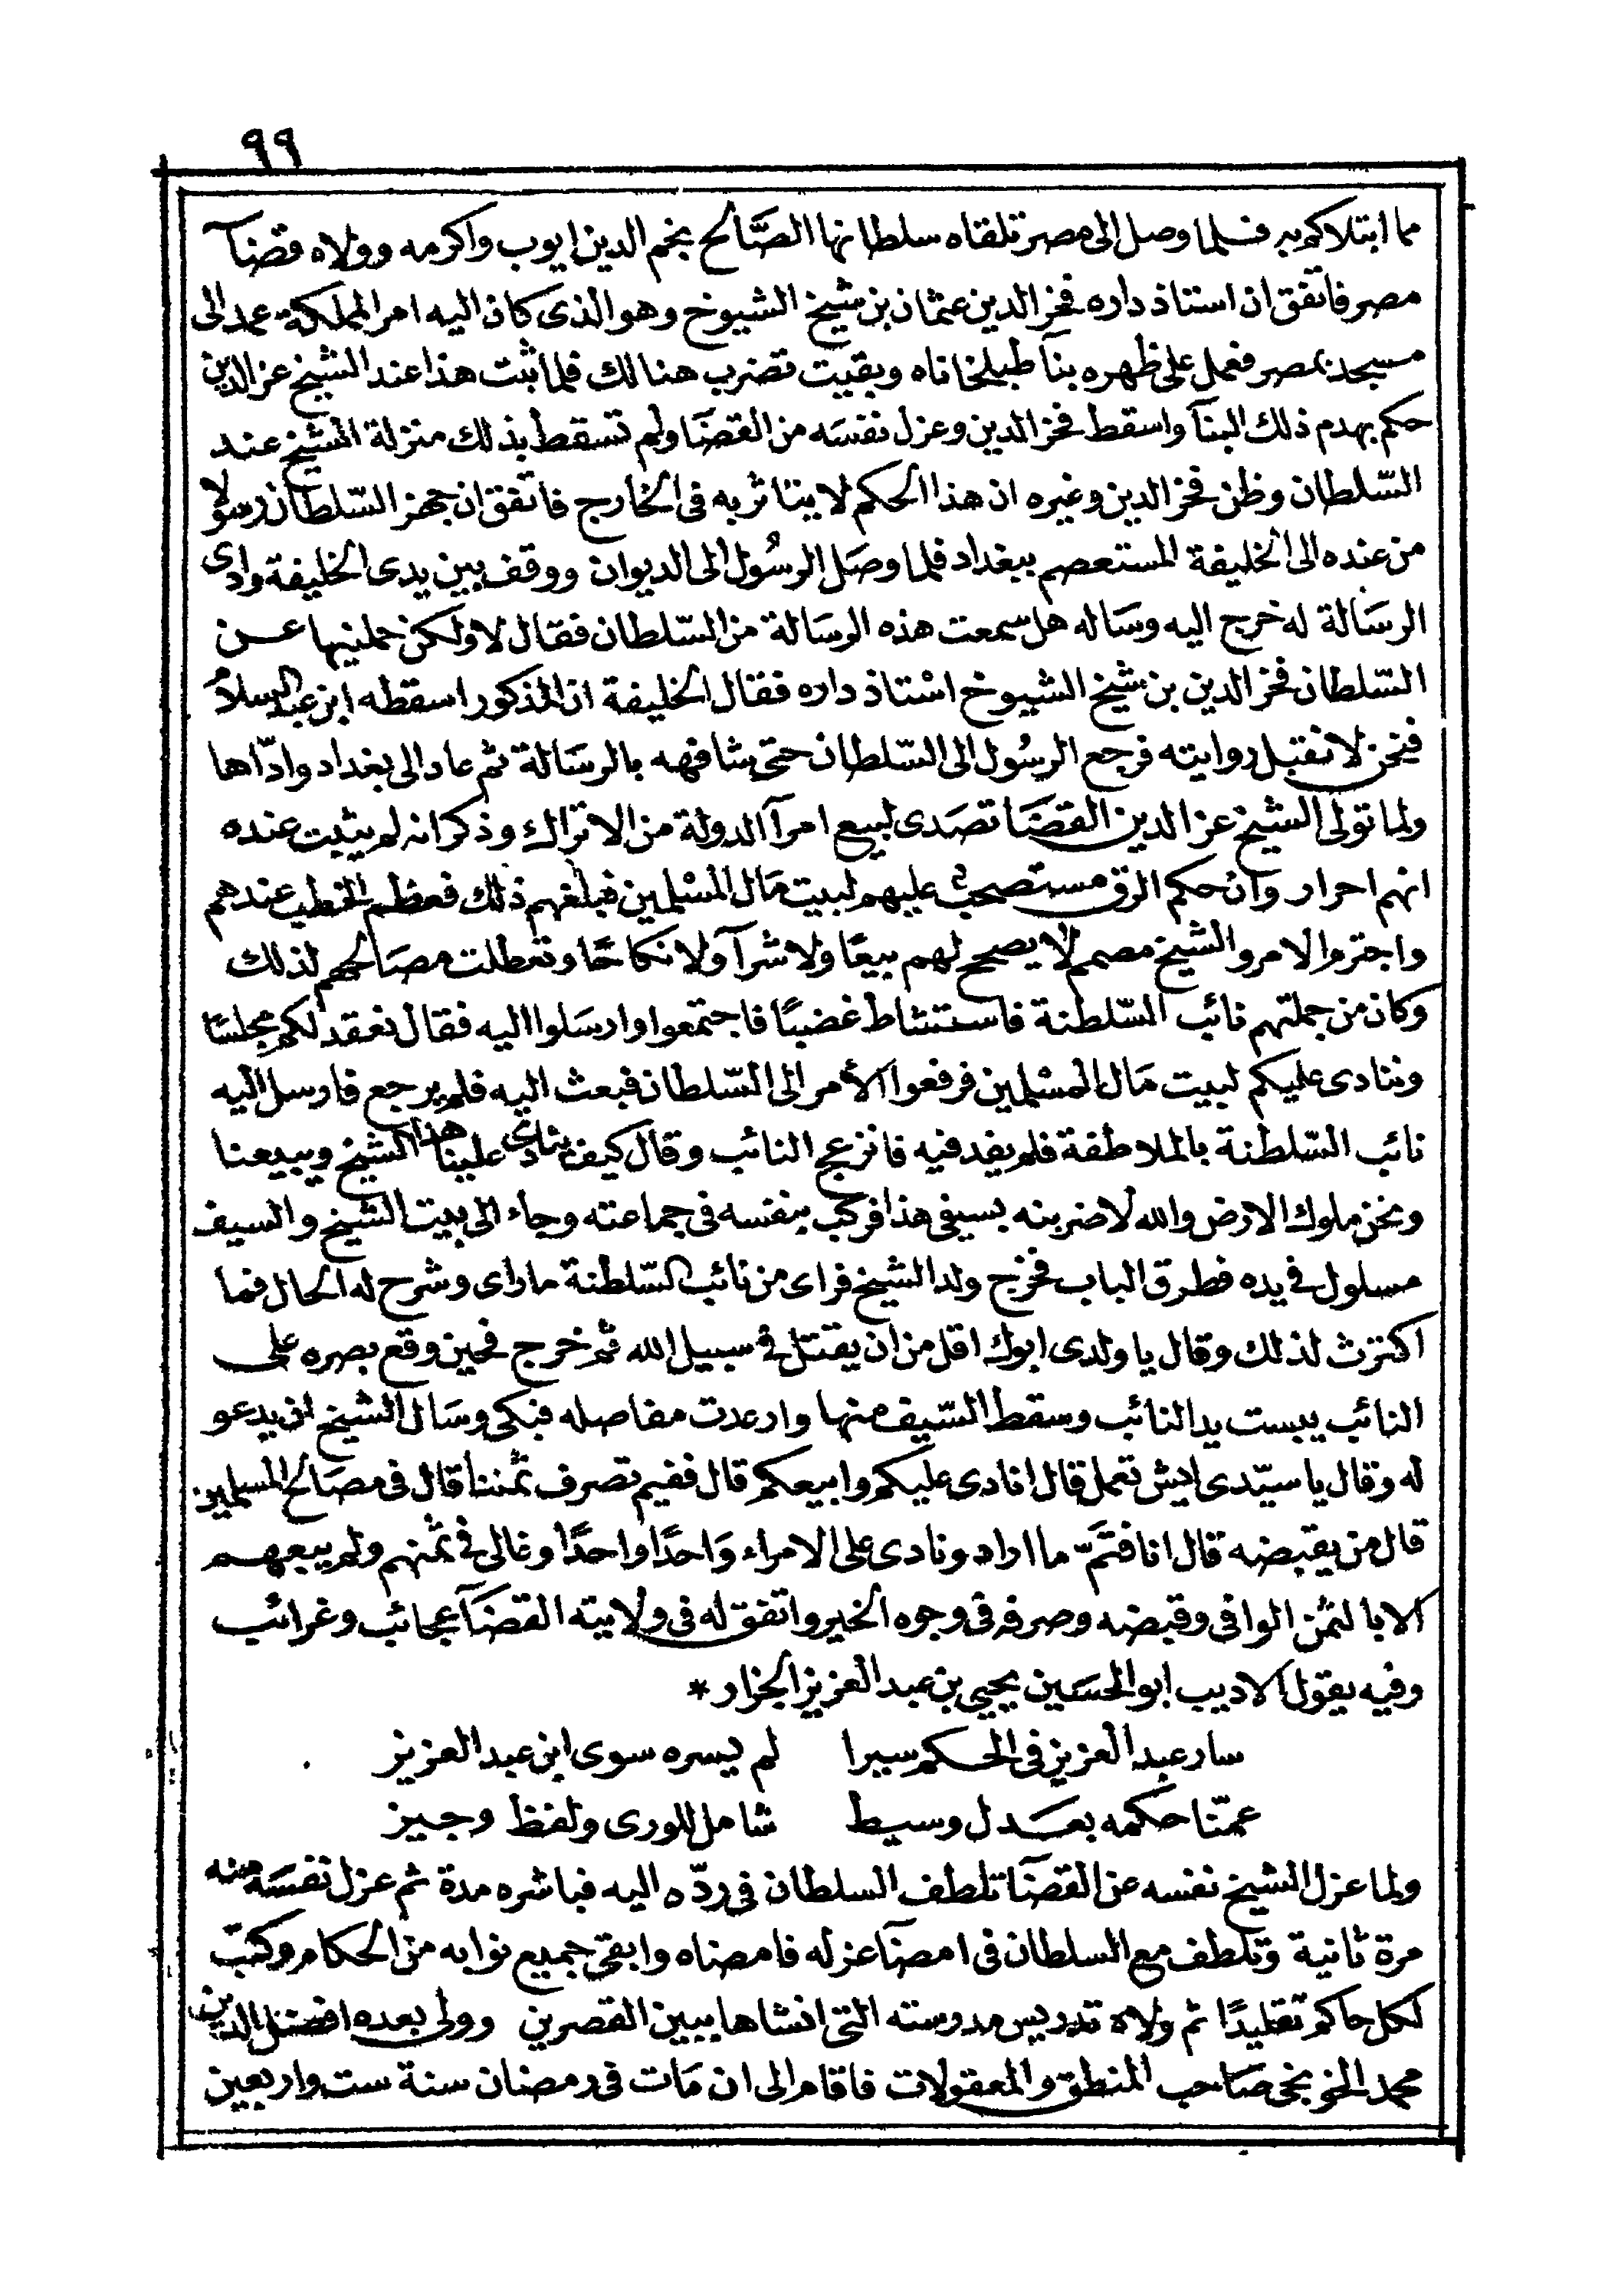 ٩٩
مما ابتلاكم به فلما وصل الى مصر تلقاه سلطانها الصّالح نجم الدين ايوب واكرمه وولاه قضآ
مصر فاتفق ان استاذ داره فخر الدين عثمان بن شيخ الشيوخ وهو الذى كان اليه امر المملكة عمد الى
مسجد بمصر فعمل على ظهره بنآ طبلخاناه وبقيت تضرب هنالك فلما ثبت هذا عند الشيخ عز الدين
حكم بهدم ذلك البنآ واسقط فخر الدين وعزل نفسَه من القضَا ولم تسقط بذلك منزلة الشيخ عند
السّلطان وظن فخر الدين وغيره ان هذا الحكم لا يتاثر به فى الخارج فاتفق ان جهز السّلطان رسولا
من عنده الى الخليفة المستعصم ببغداد فلما وصَل الرسُول الى الديوان ووقف بين يدى الخليفة وادى
الرسَالة له خرج اليه وسَاله هل سمعت هذه الرسَالة من السّلطان فقال لا ولكن حملنيها عن
السّلطان فخر الدين بن شيخ الشيوخ استاذ داره فقال الخليفة ان المذكور اسقطه ابن عبد السلام
فنحن لا نقبل روايته فرجع الرسُول الى السّلطان حتى شافهه بالرسَالة ثم عاد الى بغداد وادّاها
ولما تولى الشيخ عز الدين القضَا تصَدى لبيع امرآ الدولة من الاتراك وذكر انه لم يثبت عنده
انهم احرار وان حكم الرق مستصحب عليهم لبيت مَال المسْلمين فبلغهم ذلك فعظم الخطب عندهم
واحترم الامر والشيخ مصمم لا يصحح لهم بيعًا ولا شرآ ولا نكاحًا وتعطلت مصَالحهم لذلك
وكان من جملتهم نائب السّلطنة فاستشاط غضبًا فاجتمعوا وارسَلوا اليه فقال نعقد لكم مجلسًا
وننادى عليكم لبيت مَال المسْلمين فرفعوا الأمر الى السّلطان فبعث اليه فلم يرجع فارسل اليه
نائب السّلطنة بالملاطفة فلم يفد فيه فانزعج النائب وقال كيف ينادى علينا هذا الشيخ ويبيعنا
ونحن ملوك الارض والله لاضربنه بسيفى هذا فركب بنفسه فى جماعته وجاء الى بيت الشيخ والسيف
مسلول فى يده فطرق الباب فخرج ولد الشيخ فراى من نائب السّلطنة ماراى وشرح له الحال فما
اكترث لذلك وقال يا ولدى ابوك اقل من ان يقتل فى سبيل الله ثم خرج فحين وقع بصره على
النائب يبست يد النائب وسقط السّيف منها وارعدت مفاصله فبكى وسَال الشيخ ان يدعو
له وقال يا سيّدى ايش تعمل قال انادى عليكم وابيعكم قال ففيم تصرف ثمننا قال فى مصَالح المسلمين
قال من يقبضه قال انا فتَمّ ما اراد ونادى على الامراء وَاحدًا واحدًا وغالى فى ثمنهم ولم يبعهم
الا بالثمن الوافى وقبضه وصرفه فى وجوه الخير واتفق له فى ولايته القضآ عجائب وغرائب
وفيه يقول الاديب ابو الحسَين يحيى بن عبد العزيز الجزار *
سار عبد العزيز فى الحكم سيرا لم يسره سوى ابن عبد العزيز
عمّنا حكمه بعَدل وسيط شامل للورى ولفظ وجيز
ولما عزل الشيخ نفسه عن القضآ تلطف السلطان فى ردّه اليه فباشره مدة ثم عزل نفسَه منه
مرة ثانية وتلطف مع السلطان فى امضآ عزله فامضاه وابقى جميع نوابه من الحكام وكتب
لكل حاكم تقليدًا ثم ولاه تدريس مدرسته التى انشاها ببين القصرين وولى بعده افضل الدين
محمد الخونجى صَاحب المنطق والمعقولات فاقام الى ان مَات فى رمضان سنة ست واربعين